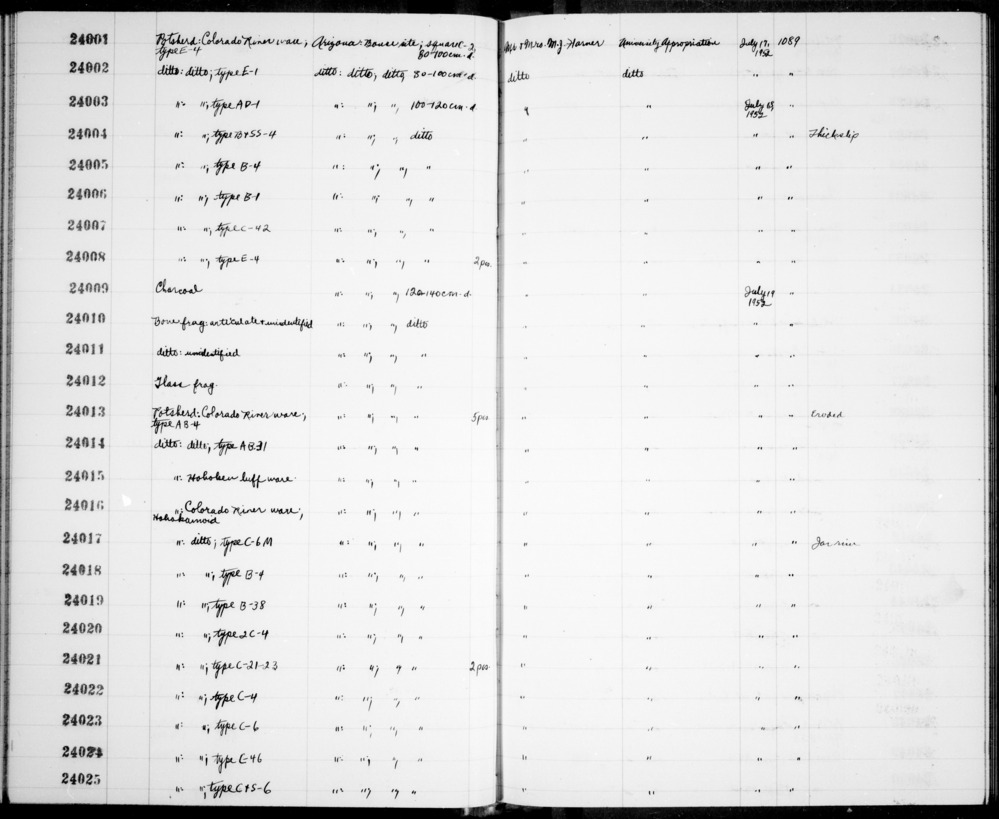 24001 Potsherd: Colorado River ware, Arizona: Bouse site; square-2, Mr. & Mrs. M.J. Harner University Appropriation July 17, 1089
type E-4 80-100cm-d. 1952
24002 ditto: ditto; type E-1 ditto: ditto; ditto, 80-100cm-d. ditto ditto " "
24003 ": "; type AD-1 ": "; ", 100-120cm-d. " " July 18, "
1952
24004 ": "; type B+55-4 ": "; ", ditto " " " " Thick slip
24005 ": "; type B-4 ": "; ", " " " " "
24006 ": "; type B-1 ": "; ", " " " " "
24007 ": "; type C-42 ": "; ", " " " " "
24008 ": "; type E-4 ": "; ", " 2 pcs. " " " "
24009 Charcoal ": "; ", 120-140cm-d. " " July 19 "
1952
24010 Bone frag: articulate + unidentified ": "; ", ditto " " " "
24011 ditto: unidentified ": "; ", " " " " "
24012 Glass frag. ": "; ", " " " " "
24013 Potsherd: Colorado River ware; ": "; ", " 5 pcs " " " " Eroded
type AB-4
24014 ditto: ditto; type AB-31 ": "; ", " " " " "
24015 ": Hoboken buff ware ": "; ", " " " " "
24016 "; Colorado River ware; ": "; ", " " " " "
Hohokamoid
24017 ": ditto; type C-6 M ": "; ", " " " " " Jar rim
24018 ": "; type B-4 ": "; ", " " " " "
24019 ": "; type B-38 ": "; ", " " " " "
24020 ": "; type 2C-4 ": "; ", " " " " "
24021 ": "; type C-21-23 ": "; ", " 2 pcs. " " " "
24022 ": "; type C-4 ": "; ", " " " " "
24023 ": "; type C-6 ": "; ", " " " " "
24024 " "; type C-46 ": "; ", " " " " "
24025 " "; type C+5-6 ": "; ", " " " " "